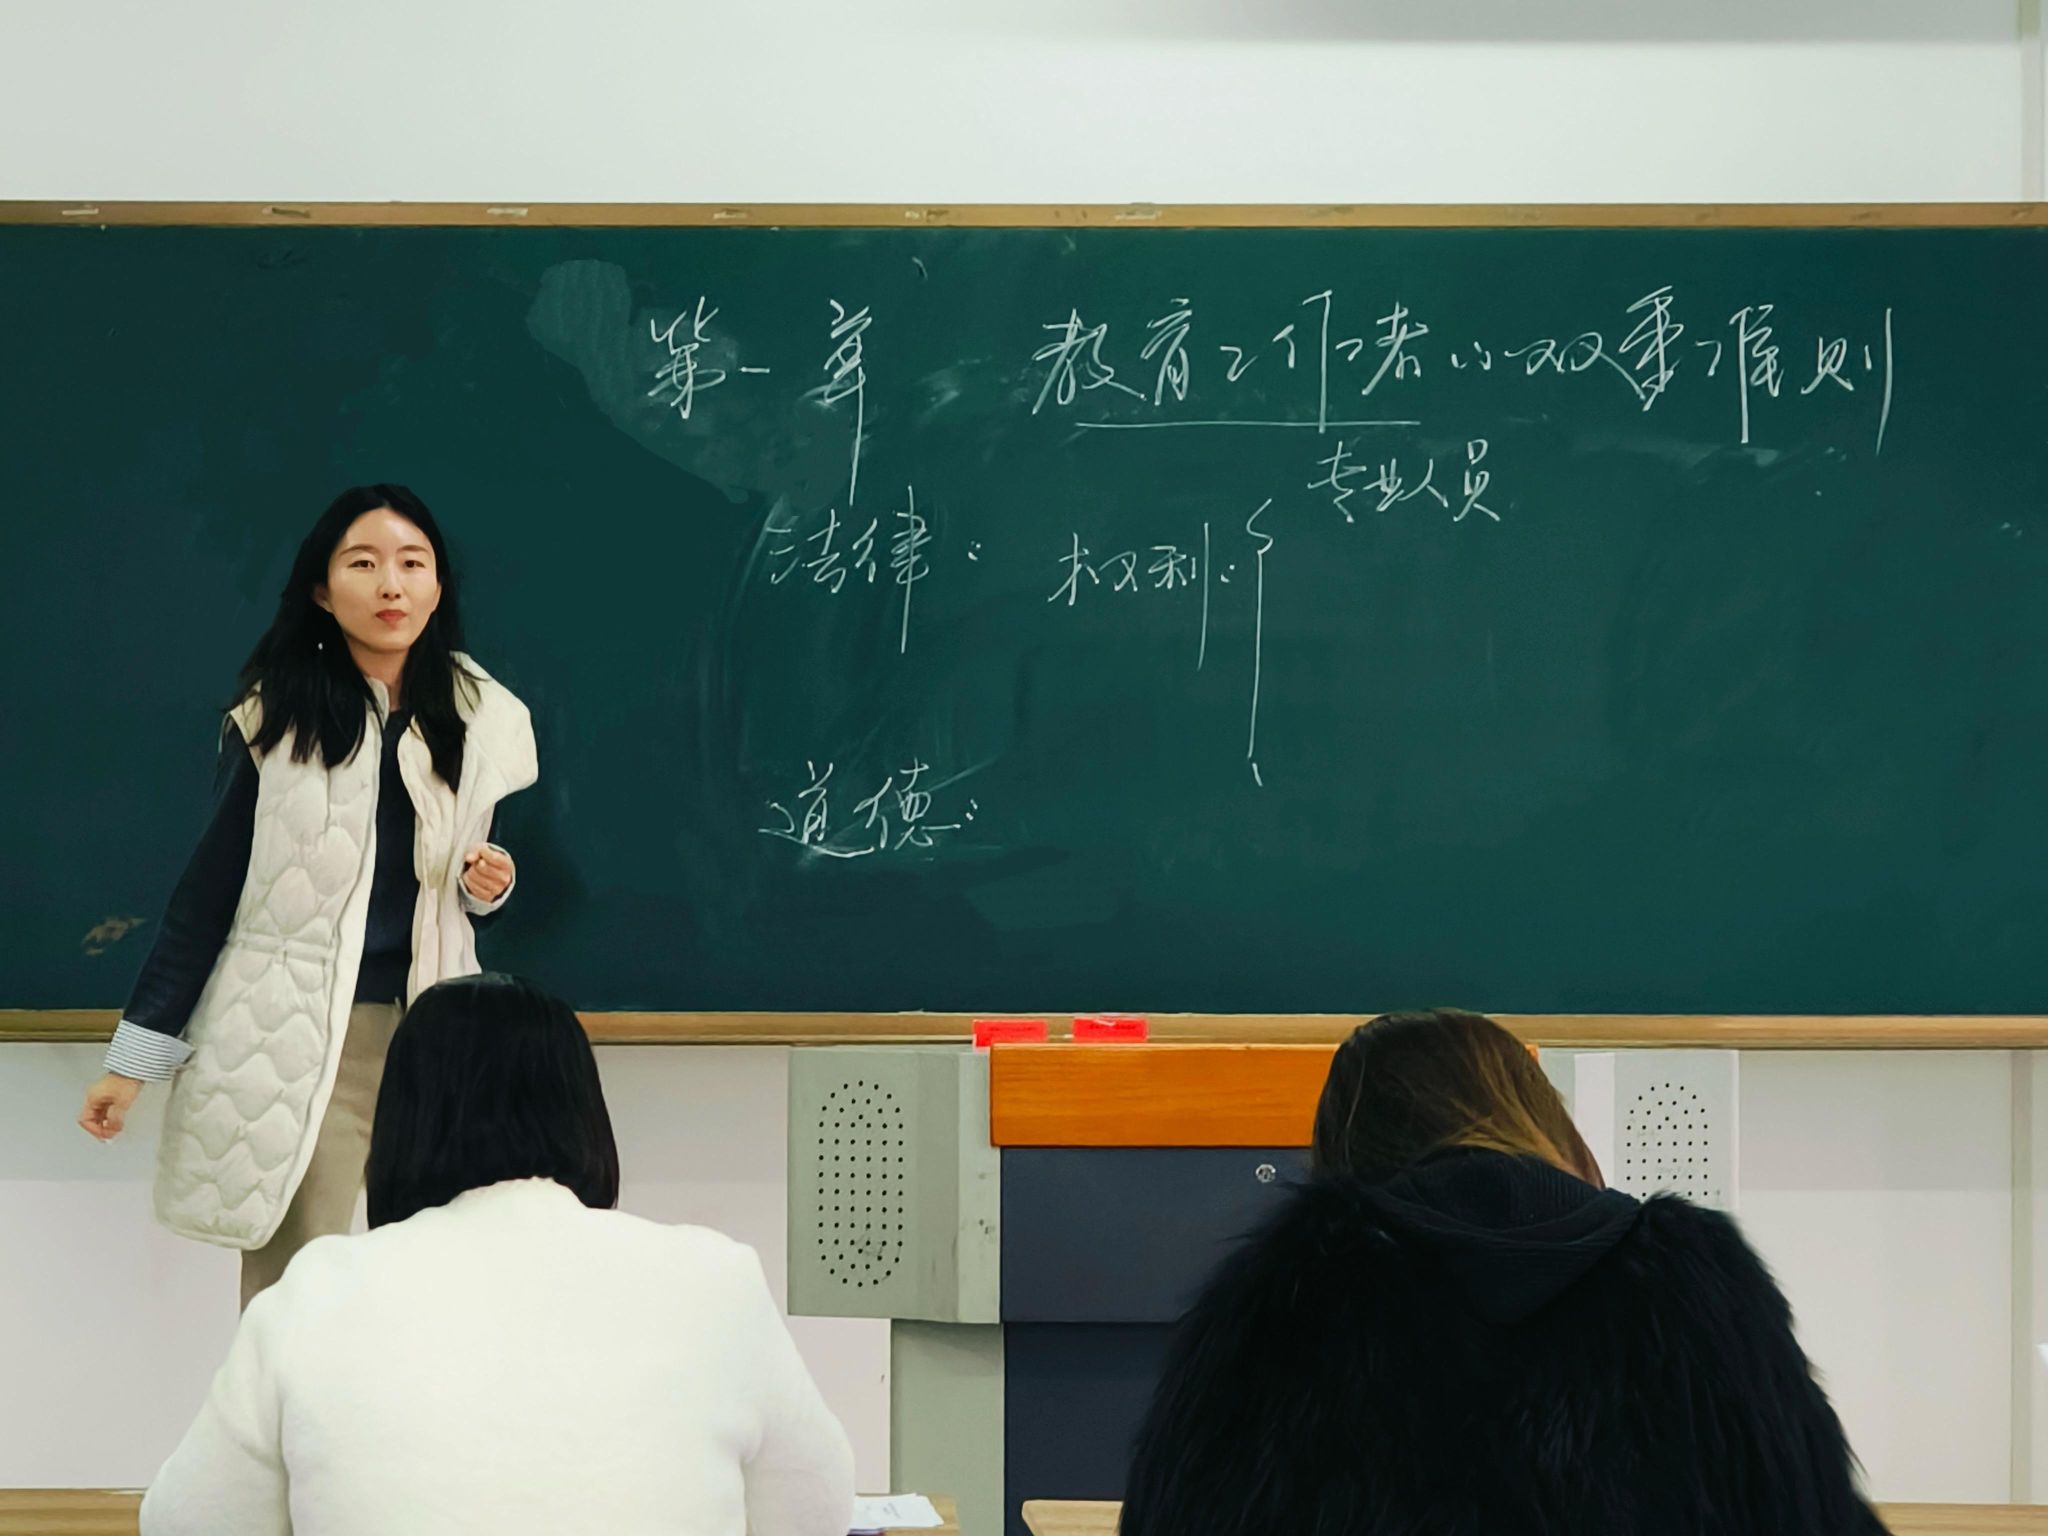 第一章 教育工作者的双重准则
专业人员
法律： 权利：{
道德：